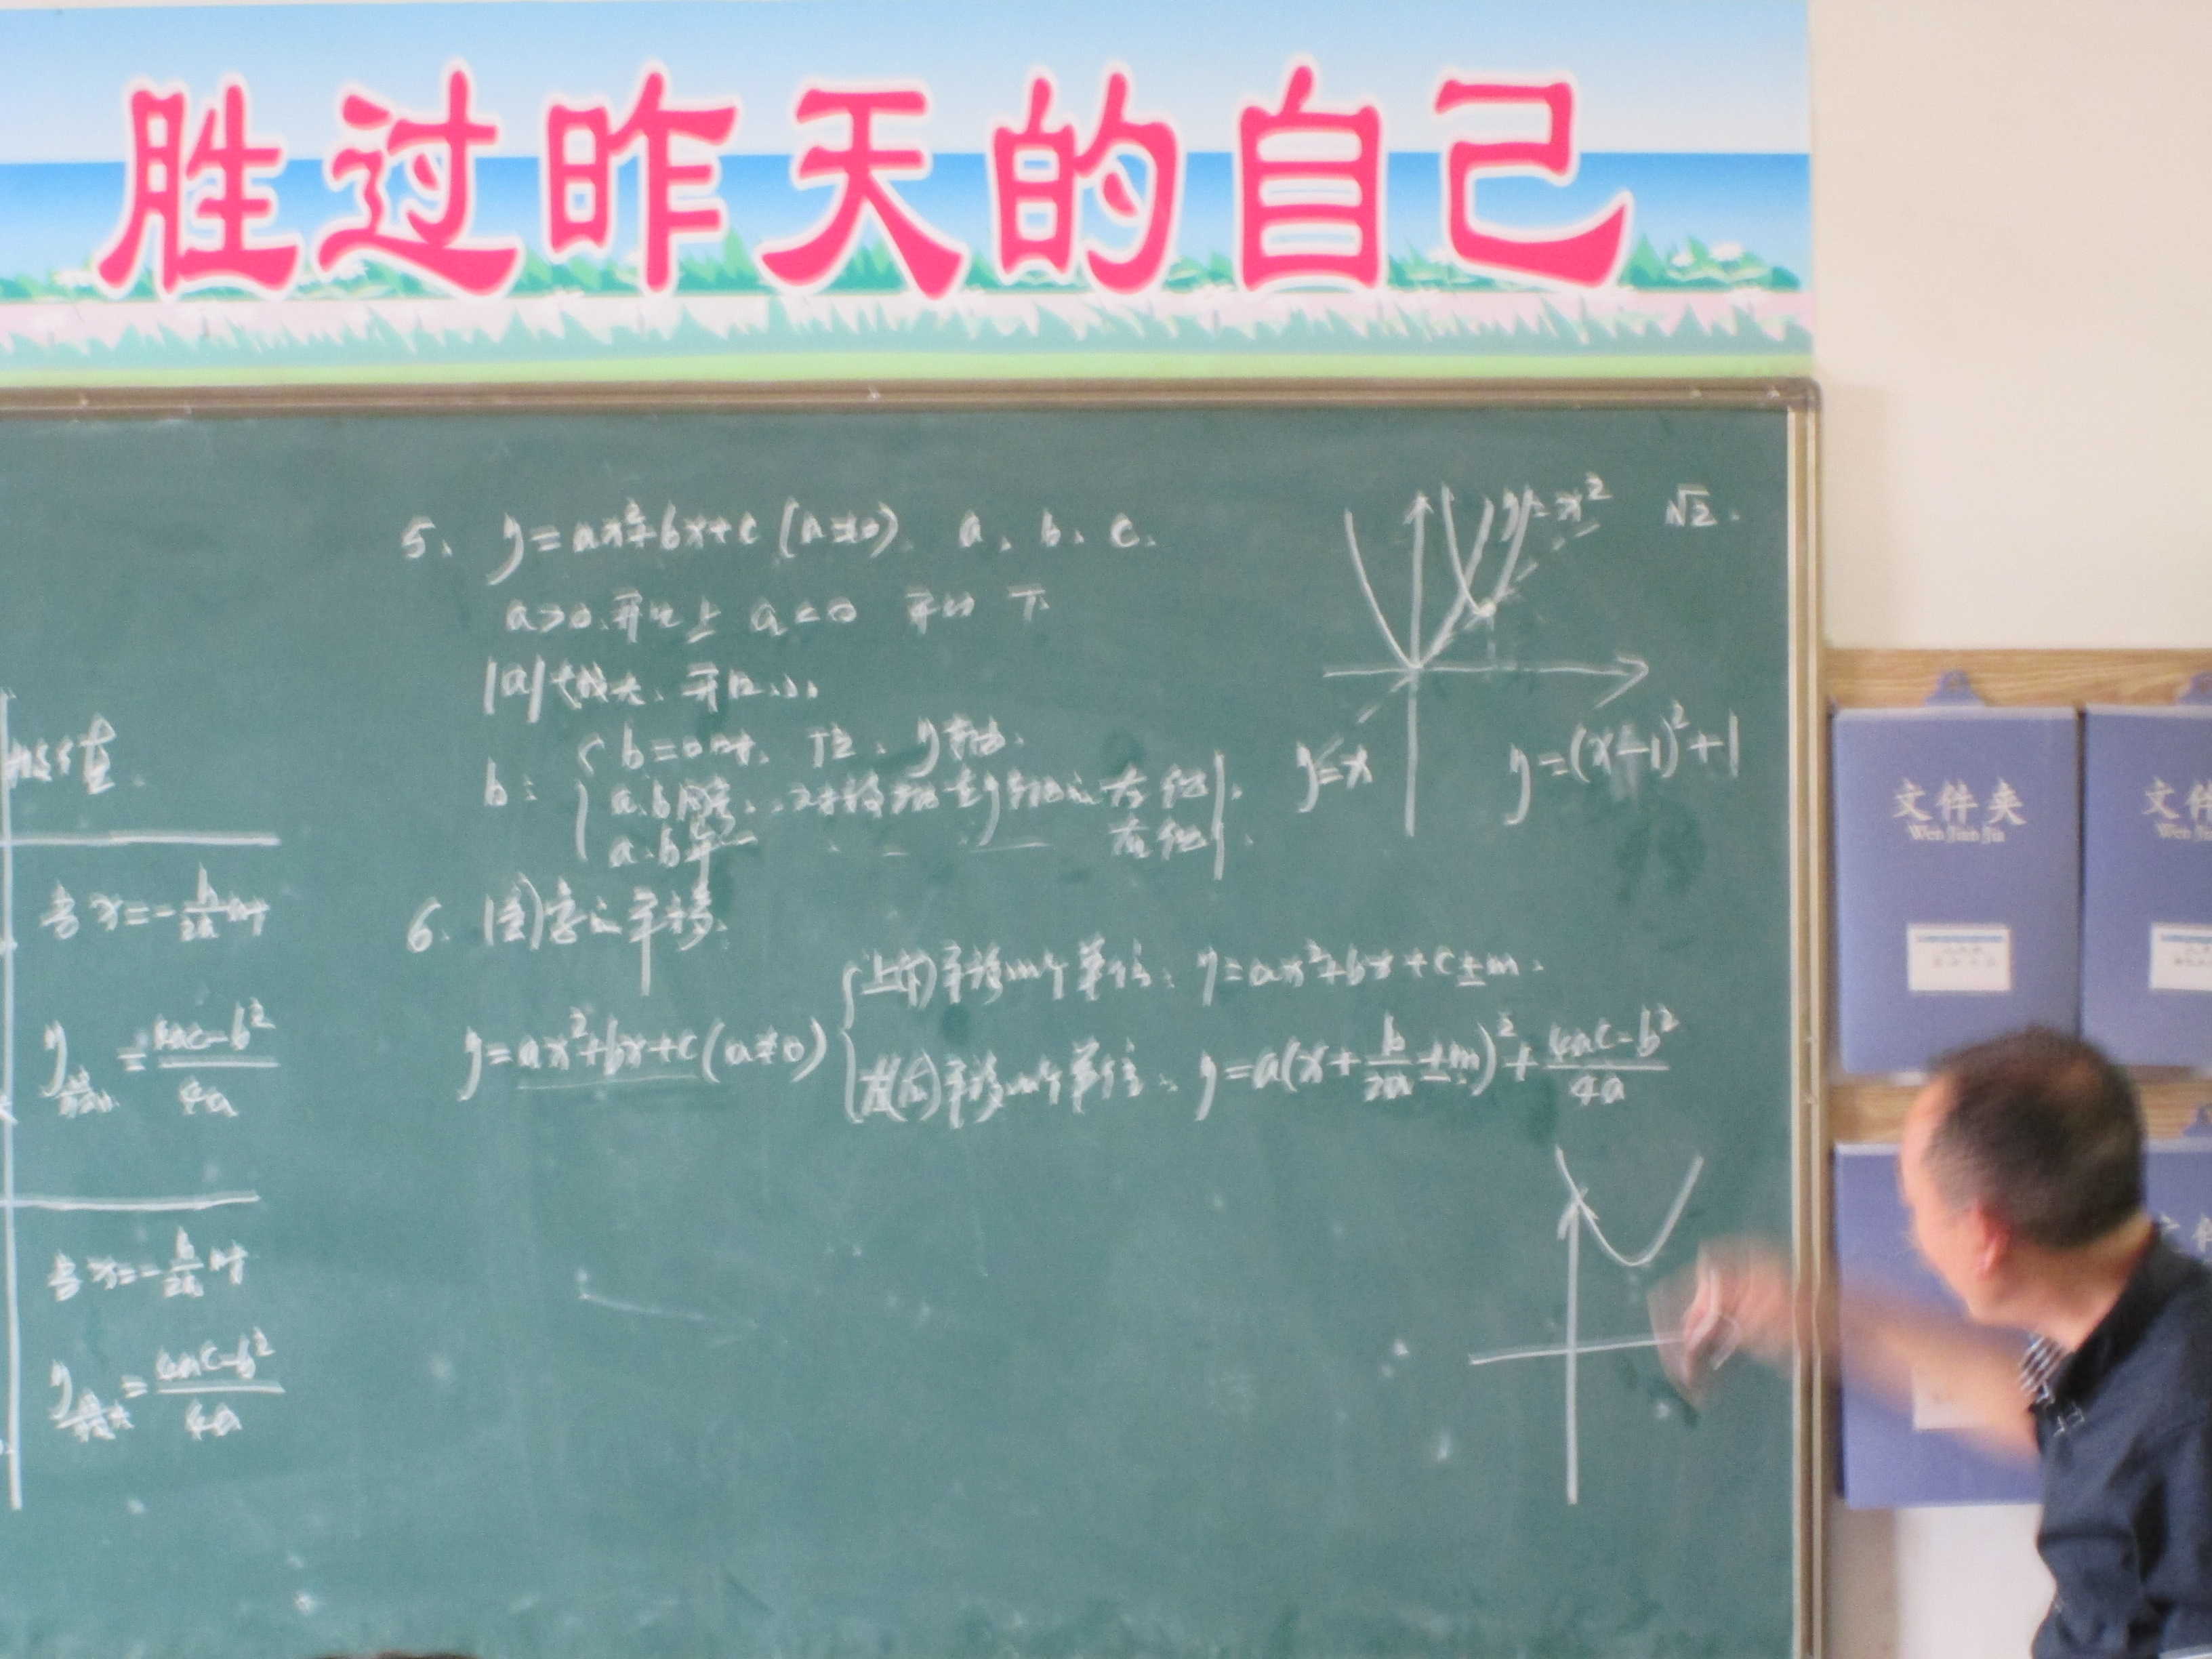 胜过昨天的自己
5、 y=ax²+bx+c (a≠0) a、b、c.
a>0.开口上 a<0 开口下
|a|越大、开口小.
b: b=0时、 y轴.
a.b同号,对称轴在y轴的左侧.
a.b异 右侧.
6. 图象的平移.
y=ax²+bx+c (a≠0)
上(下)平移m个单位: y=ax²+bx+c±m.
左(右)平移m个单位: y=a(x+b/2a±m)²+(4ac-b²)/4a
y=x² √2.
y=x
y=(x-1)²+1
最值.
当x=-b/2a时
y最小=(4ac-b²)/4a
当x=-b/2a时
y最大=(4ac-b²)/4a
文件夹
Wen Jian Jia
文件
Wen Ji
文件